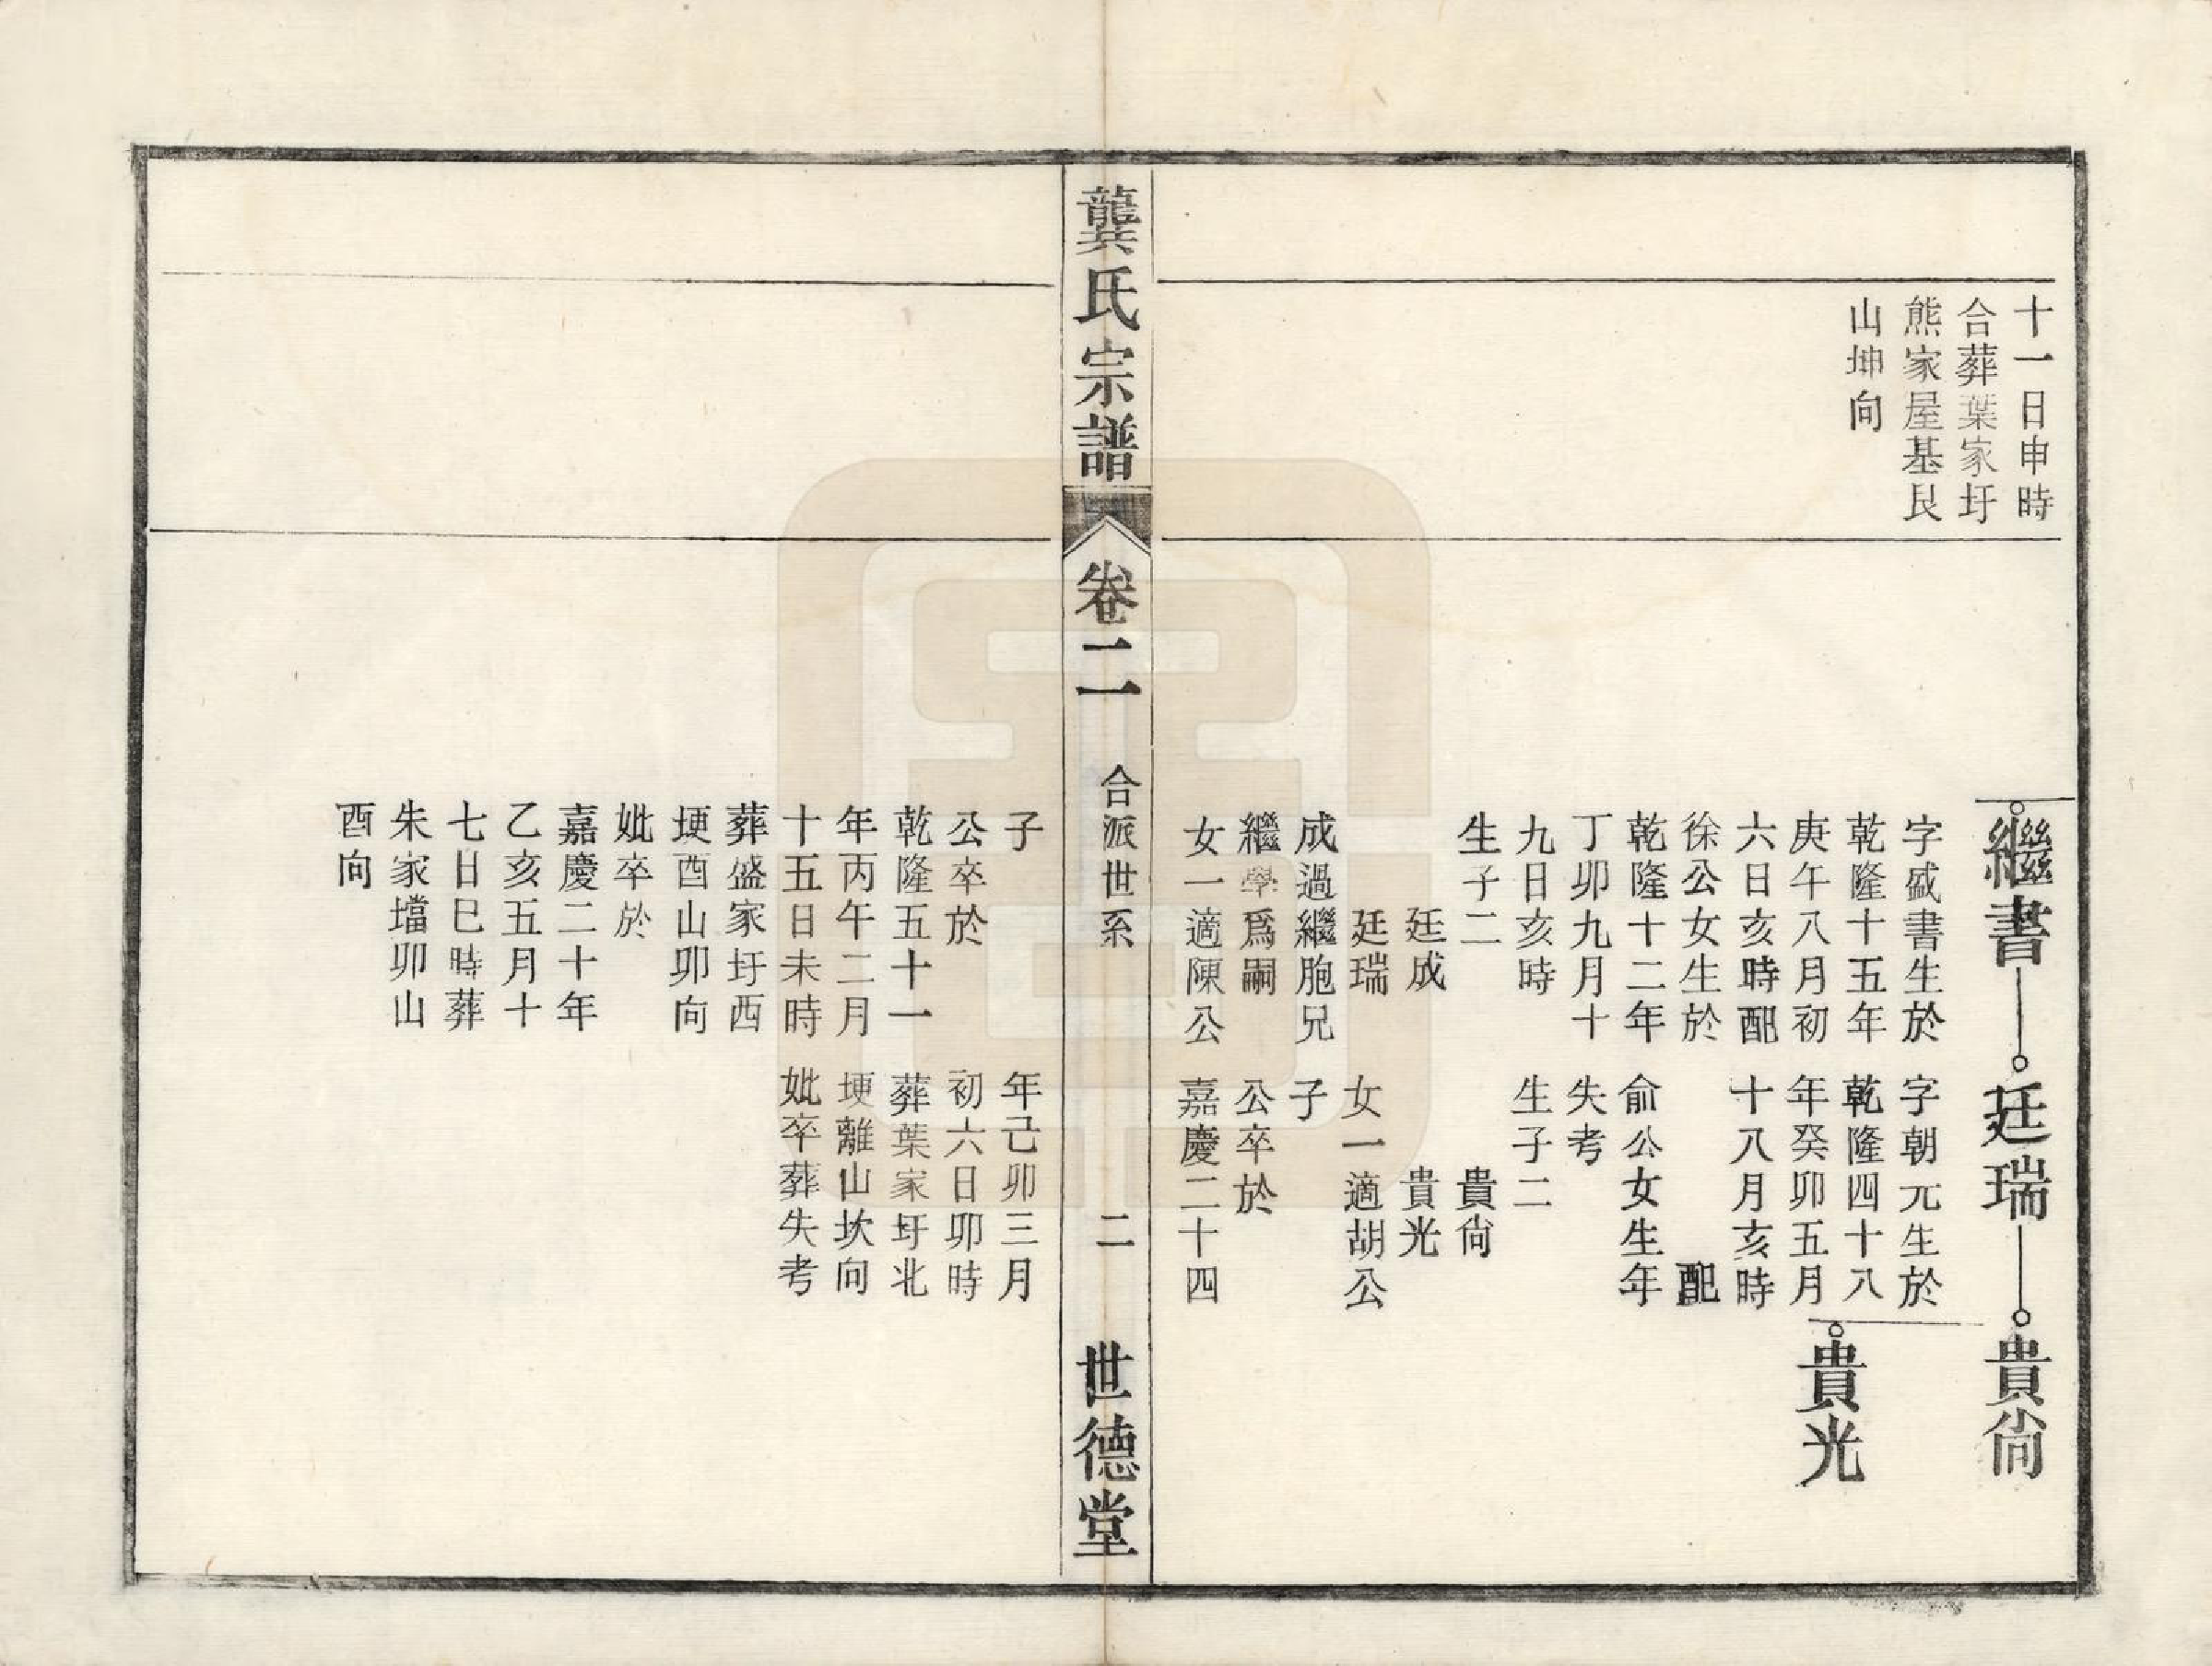 十一日申時
合葬葉家圩
熊家屋基艮
山坤向
繼書
廷瑞
貴尙
貴光
字盛書生於
乾隆十五年
庚午八月初
六日亥時配
徐公女生於
乾隆十二年
丁卯九月十
九日亥時
生子二
廷成
廷瑞
成過繼胞兄
繼學爲嗣
女一適陳公
字朝元生於
乾隆四十八
年癸卯五月
十八月亥時
配
俞公女生年
失考
生子二
貴尙
貴光
女一適胡公
子
公卒於
嘉慶二十四
龔氏宗譜
卷二
合派世系
二
世德堂
子
公卒於
乾隆五十一
年丙午二月
十五日未時
葬盛家圩西
埂酉山卯向
妣卒於
嘉慶二十年
乙亥五月十
七日巳時葬
朱家壋卯山
酉向
年己卯三月
初六日卯時
葬葉家圩北
埂離山坎向
妣卒葬失考